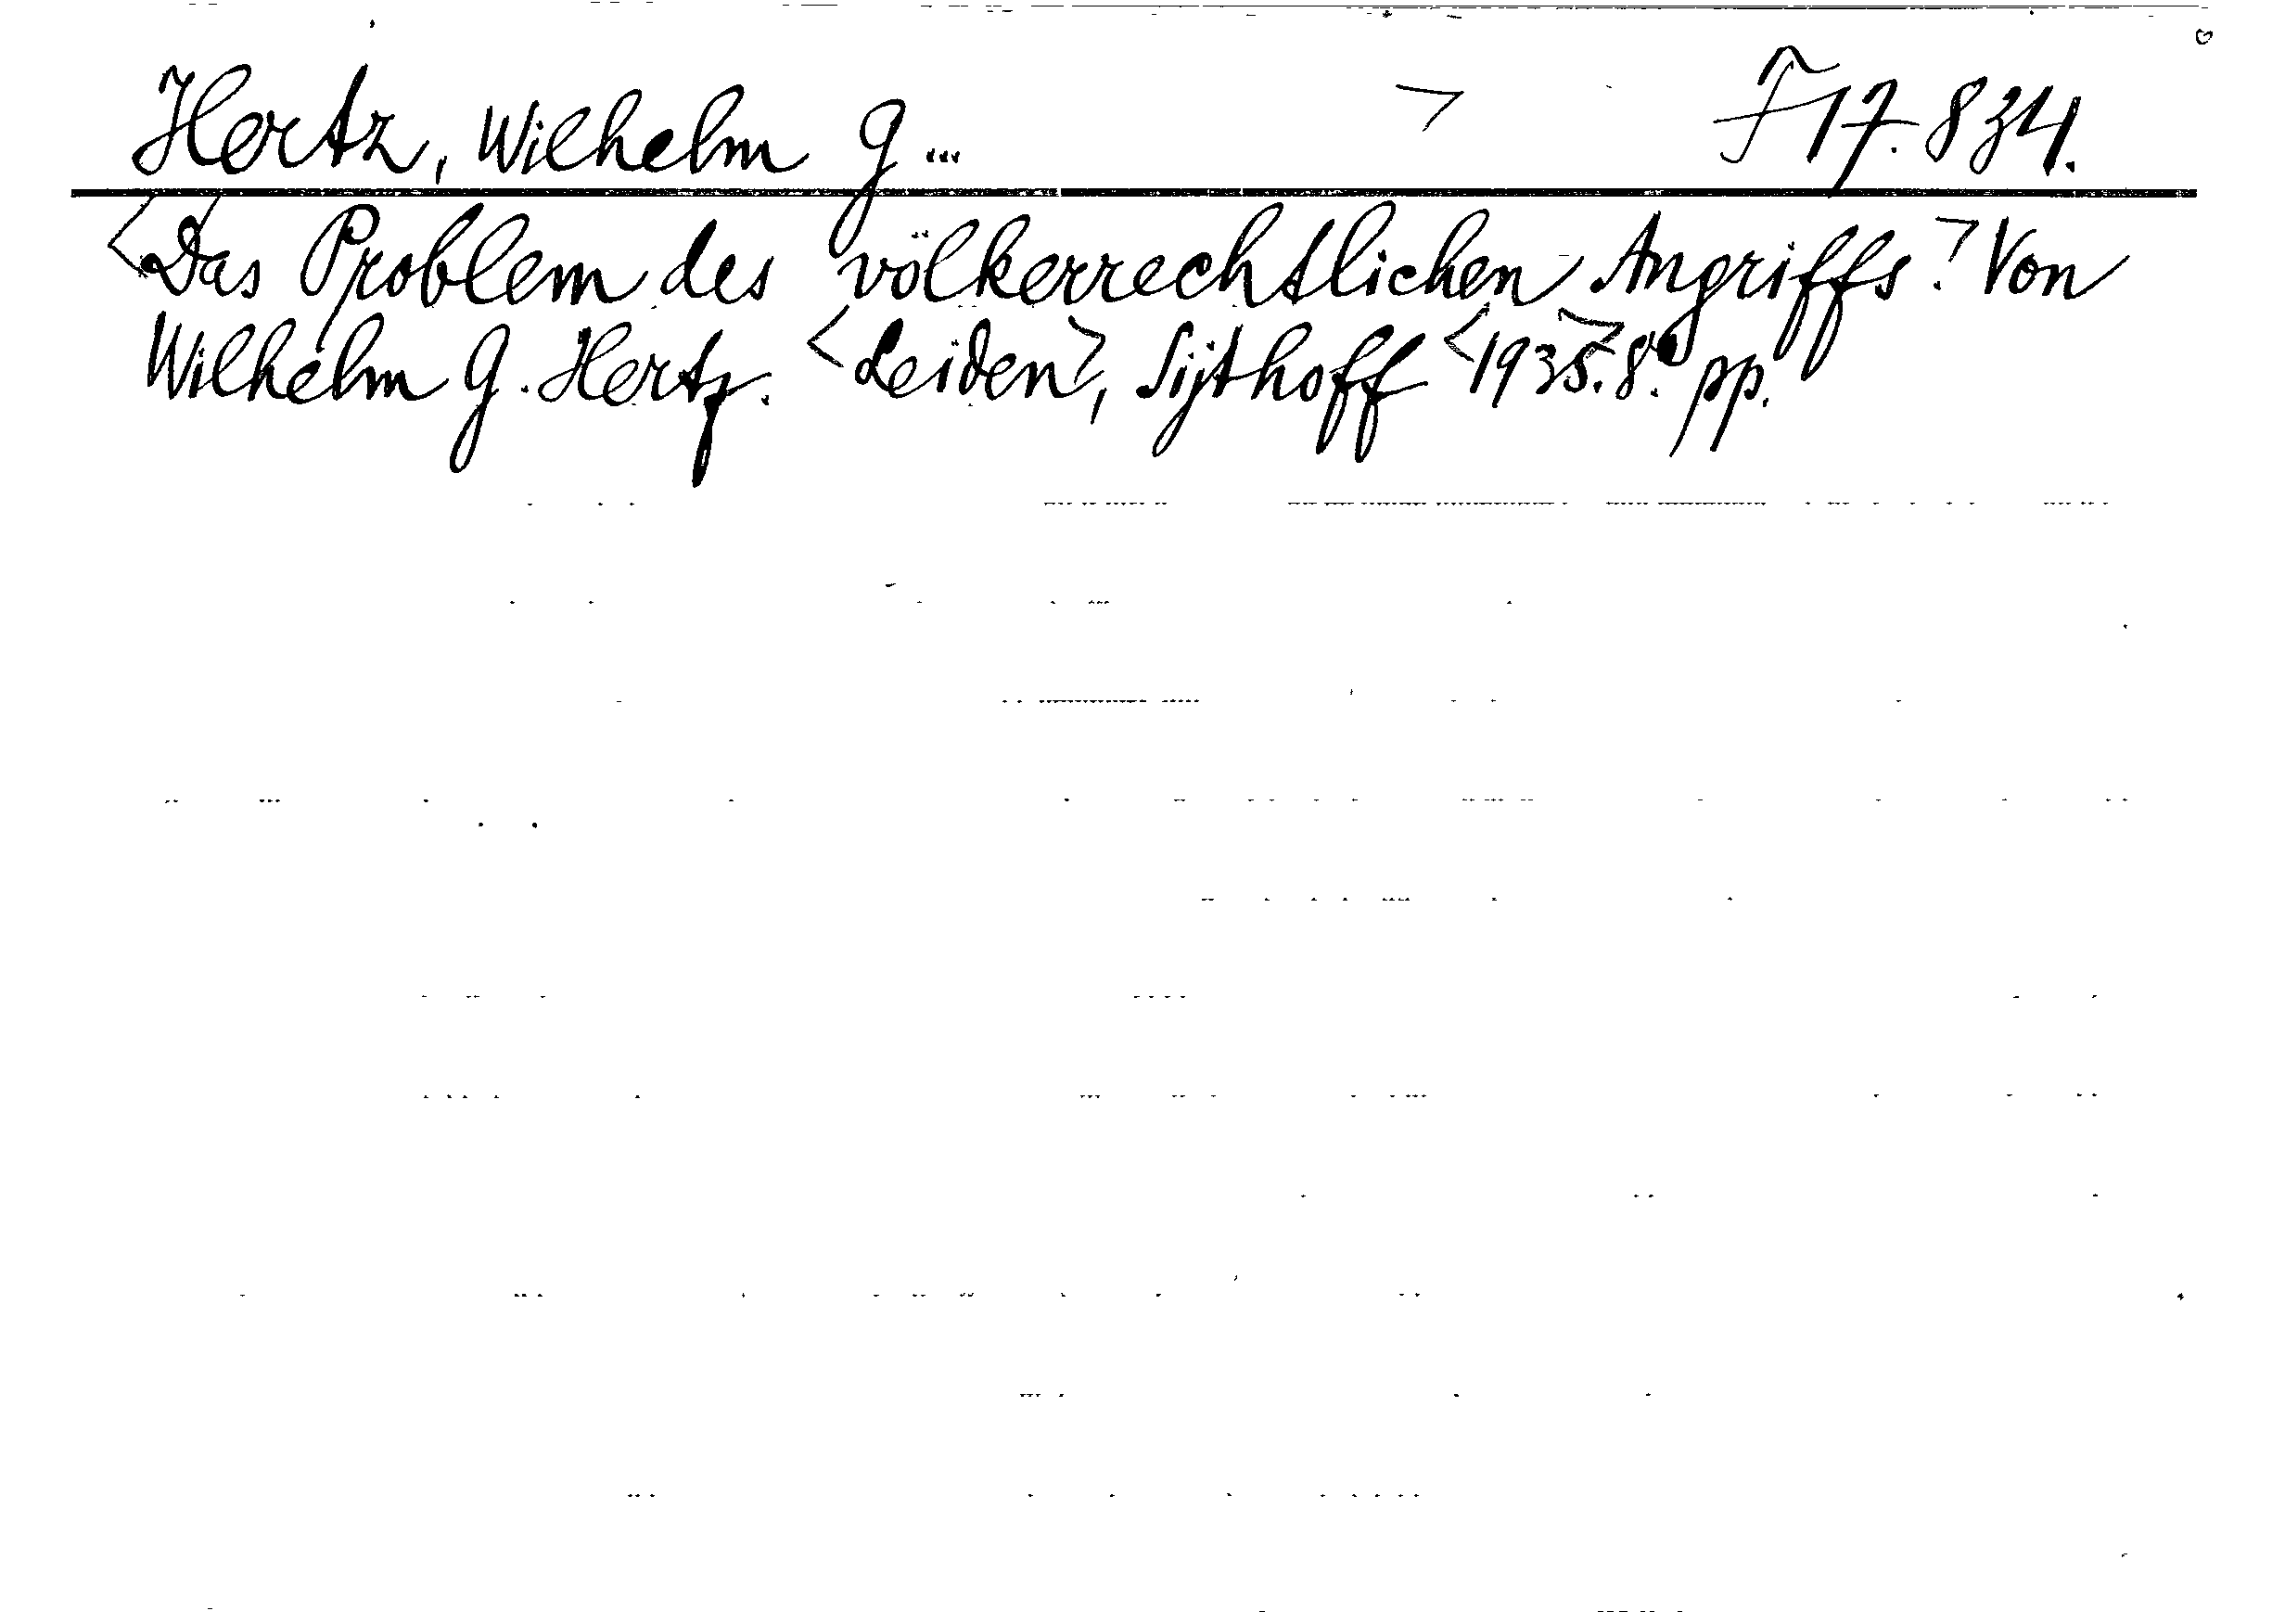 Hertz, Wilhelm G... F 17.834.
<Das Problem des völkerrechtlichen Angriffs.> Von
Wilhelm G. Hertz. <Leiden>, Sijthoff <1935.> 8° pp.